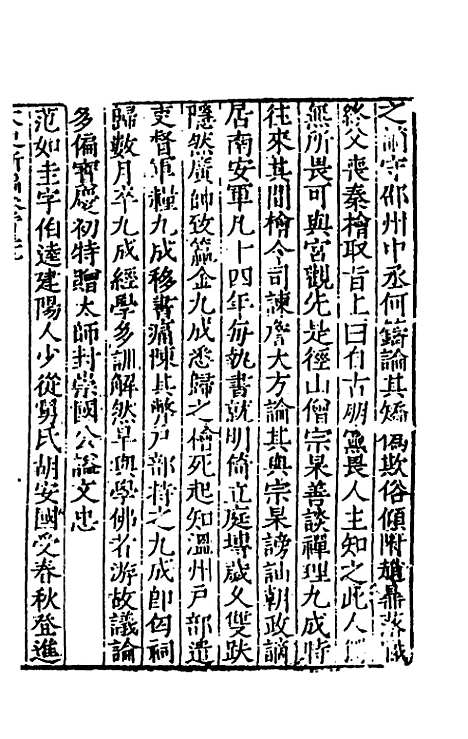 之謫守邵州中丞何鑄論其矯偽欺俗傾附趙鼎落職
終父喪秦檜取旨上曰自古朋無畏人主知之此人
無所畏可與宮觀先是徑山僧宗杲善談禪理九成時
往來其間檜令司諫詹大方論其與宗杲謗訕朝政謫
居南安軍凡十四年每執書就明倚立庭塼歲久雙趺
隱然廣帥致籝金九成悉歸之檜死起知溫州戶部遣
吏督軍糧九成移書痛陳其弊戶部持之九成即匃祠
歸數月卒九成經學多訓解然早與學佛者游故議論
多偏寶慶初特贈太師封崇國公謚文忠
范如圭字伯逵建陽人少從舅氏胡安國受春秋登進